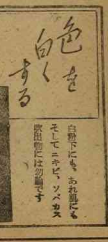 色を
白く
する
白粉下にも、あれ肌にも
そしてニキビ、ソバカス
吹出物には勿論です